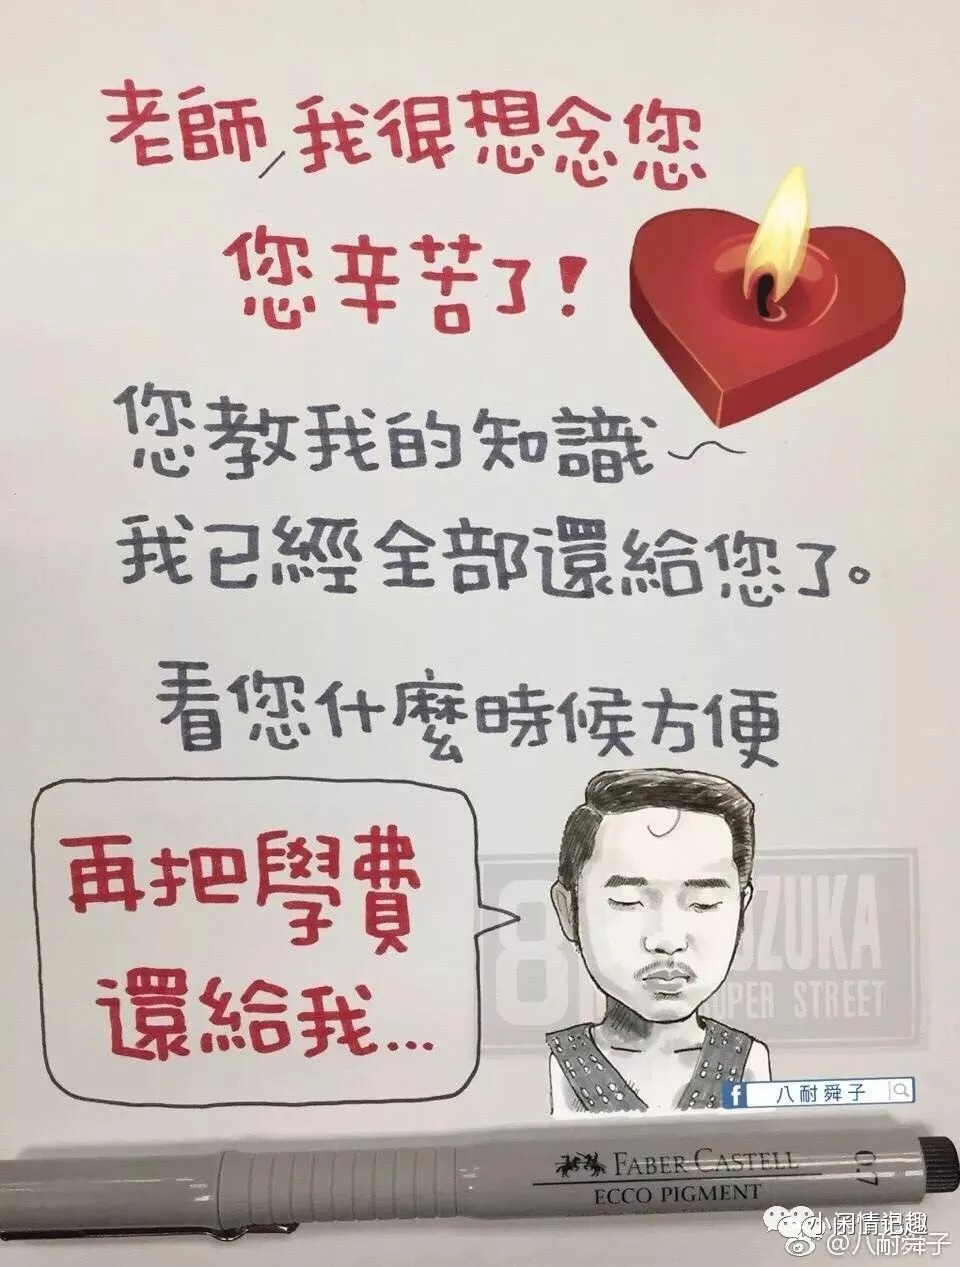 老師,我很想念您
您辛苦了!
您教我的知識~
我已經全部還給您了。
看您什麼時候方便
再把學費
還給我...
8
ZUKA
UPER STREET
f 八耐舜子
FABER-CASTELL
ECCO PIGMENT
0.7
小闲情记趣
@八耐舜子